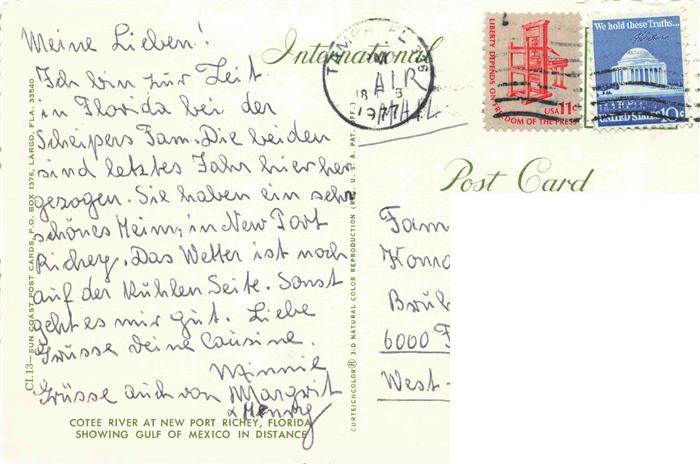 Meine Lieben!
Ich bin zur Zeit
in Florida bei der
Scheipers Fam. Die beiden
sind letztes Jahr hier her
gezogen. Sie haben ein sehr
schönes Heim, in New Port
Richey. Das Wetter ist noch
auf der Kühlen Seite. Sonst
geht es mir gut. Liebe
Grüsse deine Cousine.
Minnie
Grüsse auch von Margrit
& Henry
COTEE RIVER AT NEW PORT RICHEY, FLORIDA
SHOWING GULF OF MEXICO IN DISTANCE
CI.13—SUN COAST POST CARDS, P.O. BOX 1376, LARGO, FLA. 33540
CURTEICHCOLOR® 3-D NATURAL COLOR REPRODUCTION (REG. U.S.A. PAT. OFF.)
International
TAMPA, FL
AIR
18
1977
MAIL
LIBERTY DEPENDS ON FREEDOM OF THE PRESS
USA 11c
We hold these Truths...
UNITED STATES 10c
Post Card
Fam
Konra
Brüh
6000 F
West-